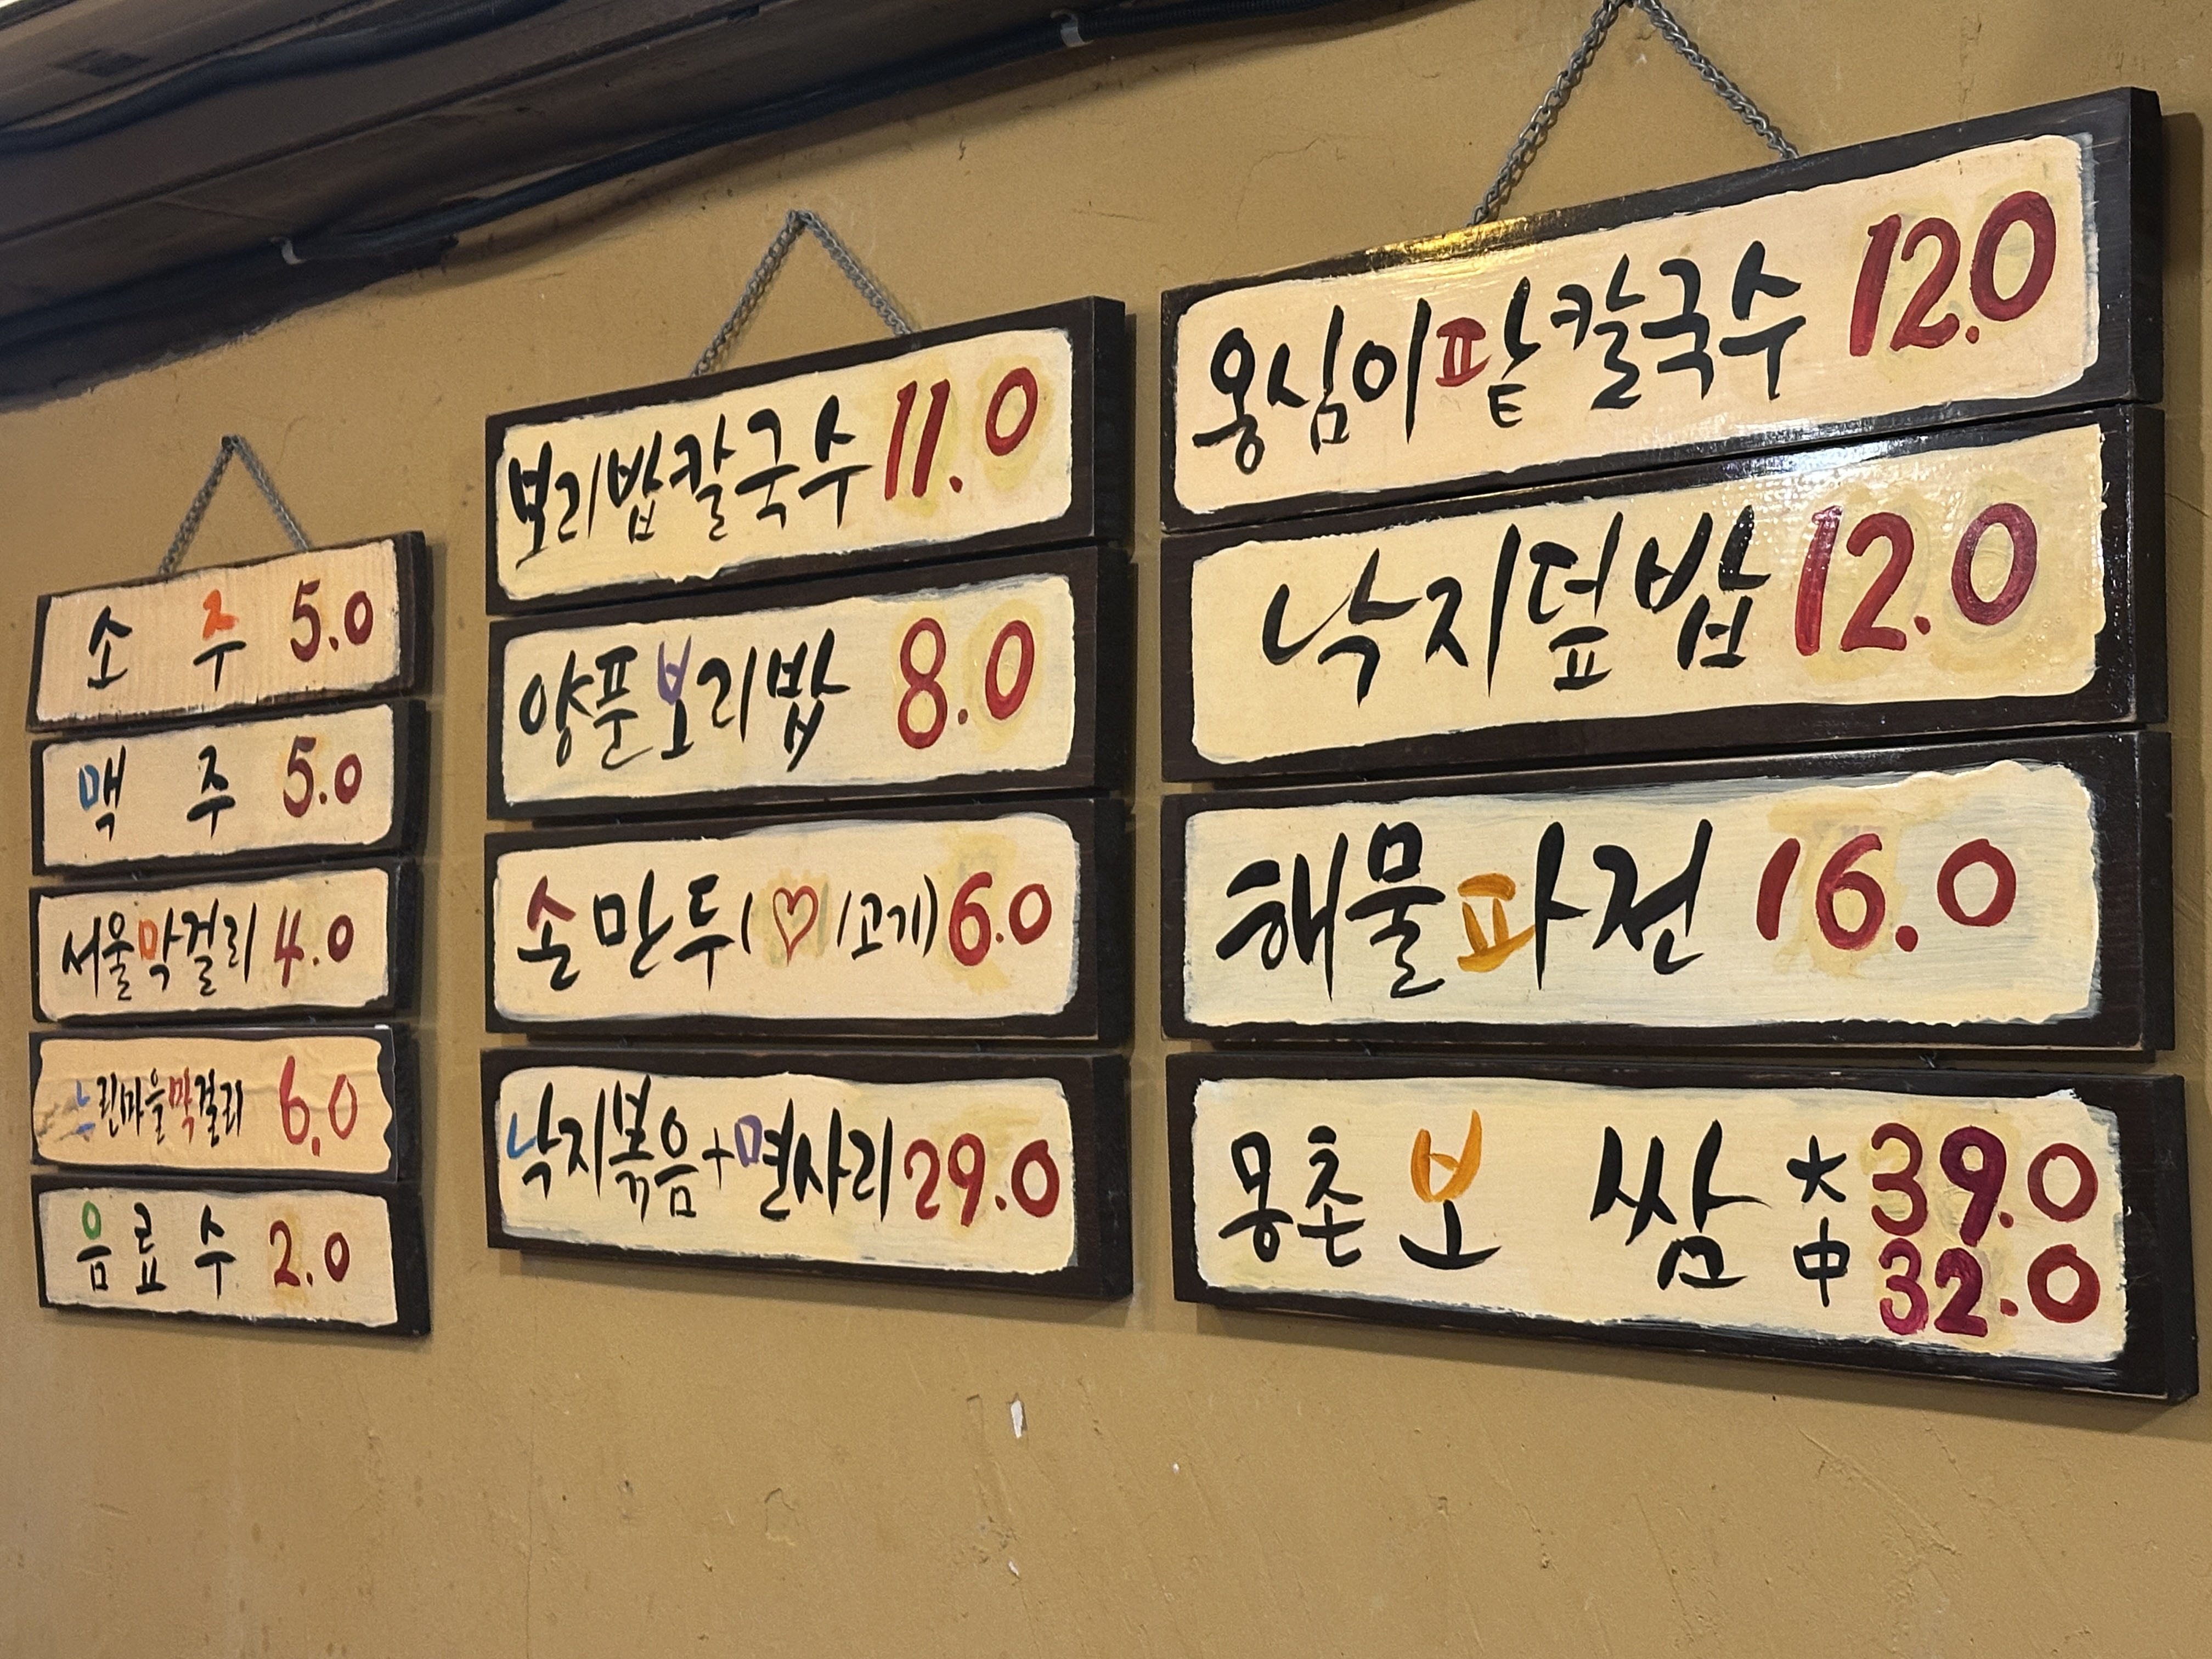 소 주 5.0
맥 주 5.0
서울막걸리 4.0
느린마을막걸리 6.0
음료수 2.0
보리밥칼국수 11.0
양푼보리밥 8.0
손만두(♡/고기) 6.0
낙지볶음+면사리 29.0
옹심이팥칼국수 12.0
낙지덮밥 12.0
해물파전 16.0
몽촌보 쌈 大 39.0
中 32.0